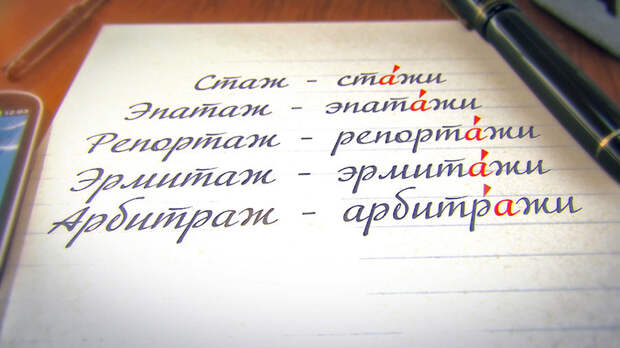 Стаж - ста́жи
Эпатаж - эпата́жи
Репортаж - репорта́жи
Эрмитаж - эрмита́жи
Арбитраж - арбитра́жи